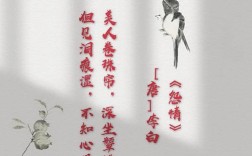 《怨情》
[唐]李白
美人卷珠帘，深坐
但见泪痕湿，不知心